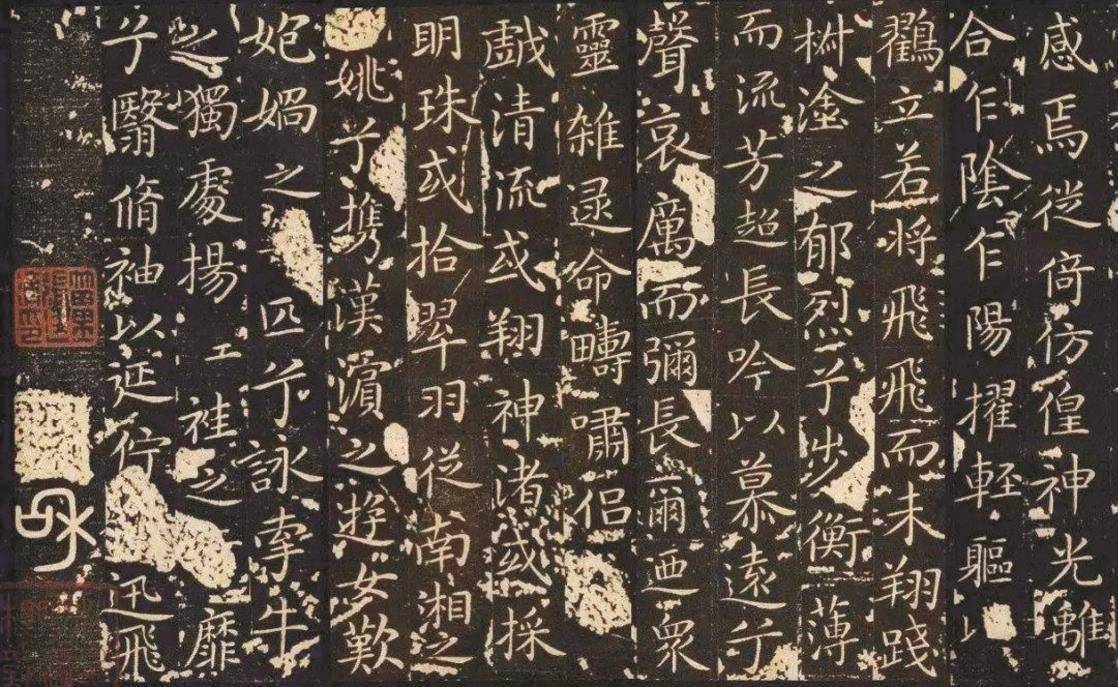 感焉徙倚彷徨神光離
合乍陰乍陽擢輕軀以
鸖立若將飛飛而未翔踐
椒塗之郁烈兮步衡薄
而流芳超長吟以慕遠兮
聲哀厲而彌長爾迺眾
靈雜遝命疇嘯侶
戲清流或翔神渚或採
明珠或拾翠羽從南湘之
姚兮攜漢濱之遊女歎
媧之匹兮詠牽牛
之獨處揚袿之靡
兮翳脩袖以延佇迅飛